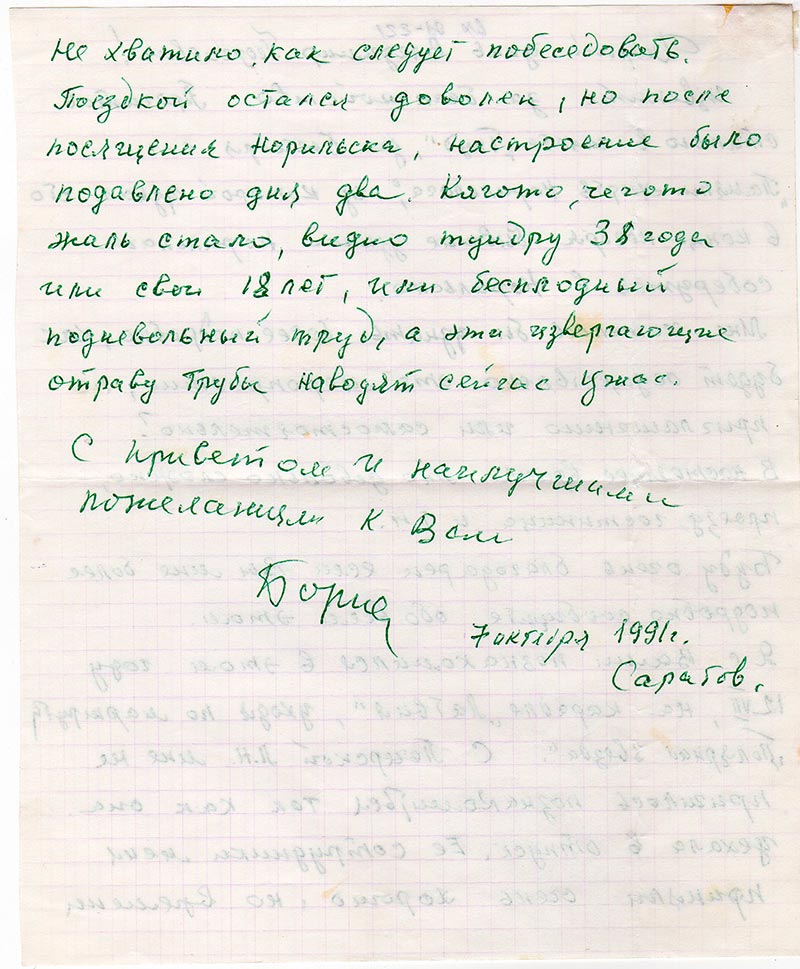 Не хватило, как следует побеседовать.
Поездкой остался доволен, но после
посящения Норильска, настроение было
подавлено дня два. Кагото, чегото
жаль стало, видно тундру 38 года
или свои 18 лет, или бесплодный
подневольный труд, а эти извергающие
отраву Трубы наводят сейчас Ужас.
С приветом и наилучшими
пожеланиями К Вам
Борис
7 октября 1991г.
Саратов.